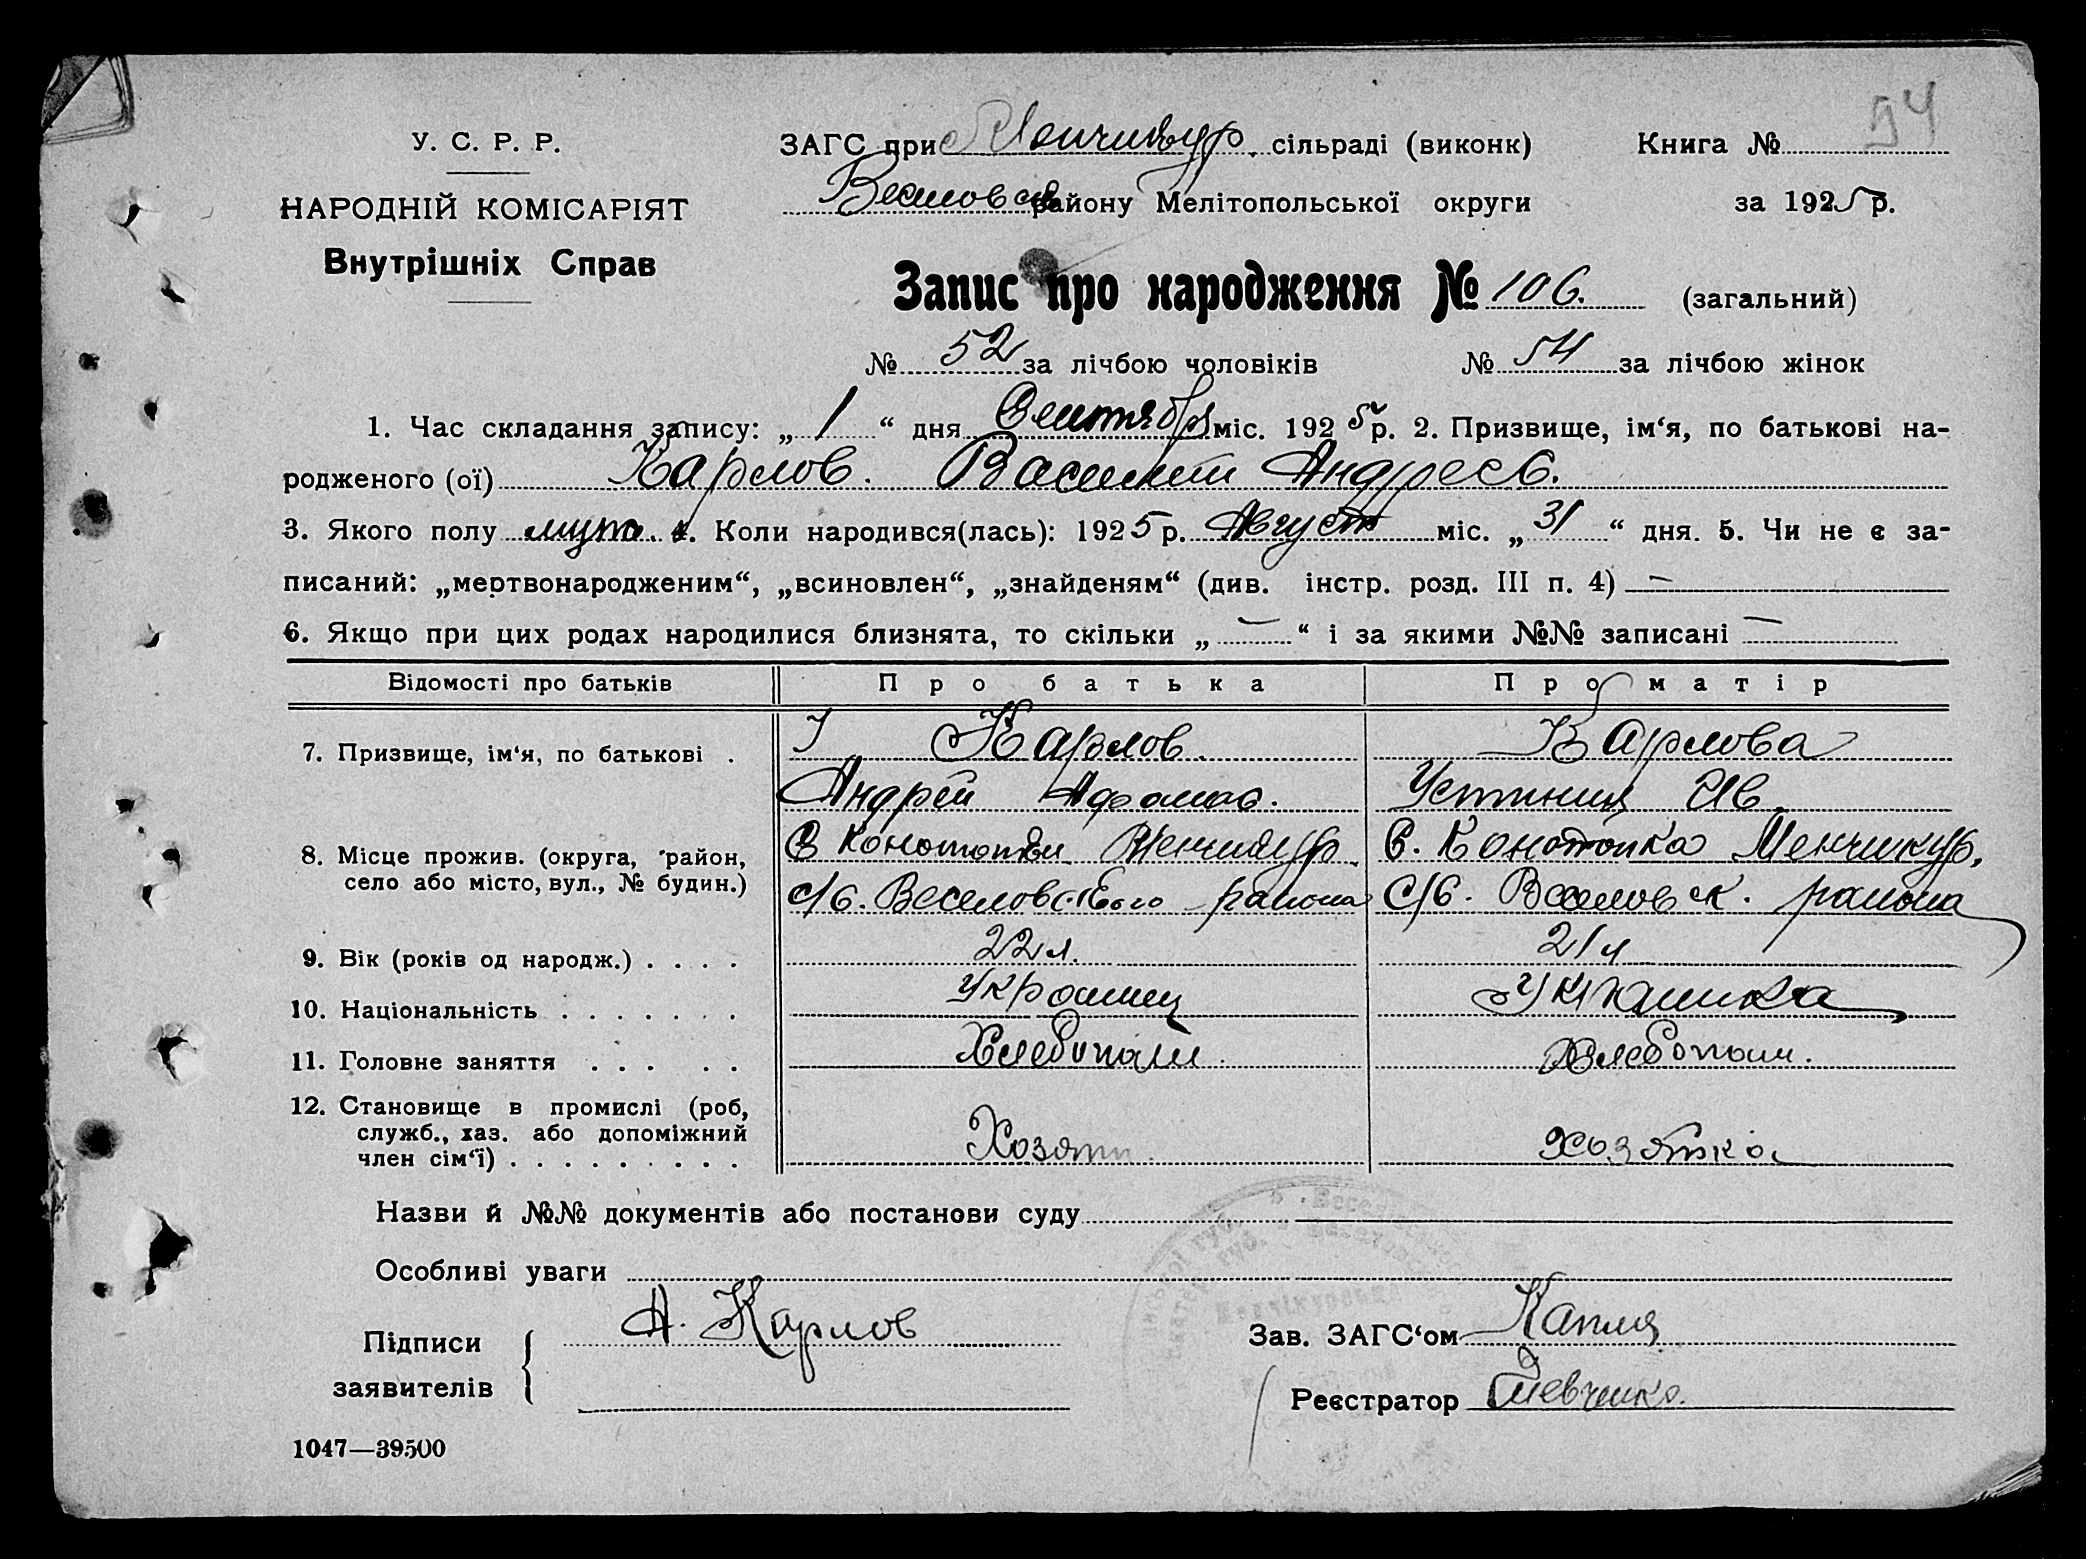 94
У. С. Р. Р.
НАРОДНІЙ КОМІСАРІЯТ
Внутрішніх Справ
ЗАГС при Менчикур. сільраді (виконк)
Книга №
Веселовск району Мелітопольської округи
за 1925 р.
Запис про народження № 106. (загальний)
№ 52 за лічбою чоловіків № 54 за лічбою жінок
1. Час складання запису: „ 1 “ дня Сентября міс. 1925 р. 2. Призвище, ім‘я, по батькові на-
родженого (ої) Карлов. Василий Андреев.
3. Якого полу муж. 4. Коли народився(лась): 1925 р. Август міс. „ 31 “ дня. 5. Чи не є за-
писаний: „мертвонародженим“, „всиновлен“, „знайденям“ (див. інстр. розд. III п. 4) —
6. Якщо при цих родах народилися близнята, то скільки „ — “ і за якими №№ записані —
Відомості про батьків Про батька Про матір
7. Призвище, ім‘я, по батькові . Карлов. Карлова
Андрей Афанас. Устиния Ив.
8. Місце прожив. (округа, район, Менчикур С. Конотопка Менчикур.
село або місто, вул., № будин.) с/б. Веселовского района с/б. Веселовск. района
9. Вік (років од народж.) . . . . 22 л. 21 л
10. Національність . . . . . . . Украинец Украинка
11. Головне заняття . . . . . Хлебопаш. Хлебопаш.
12. Становище в промислі (роб,
служб., хаз. або допоміжний
член сім‘ї) . . . . . . . . . Хозяин Хозяйка
Назви й №№ документів або постанови суду
Особливі уваги
Підписи
заявителів
А. Карлов
Зав. ЗАГС‘ом Капля
Реєстратор Шевченко.
1047—39500